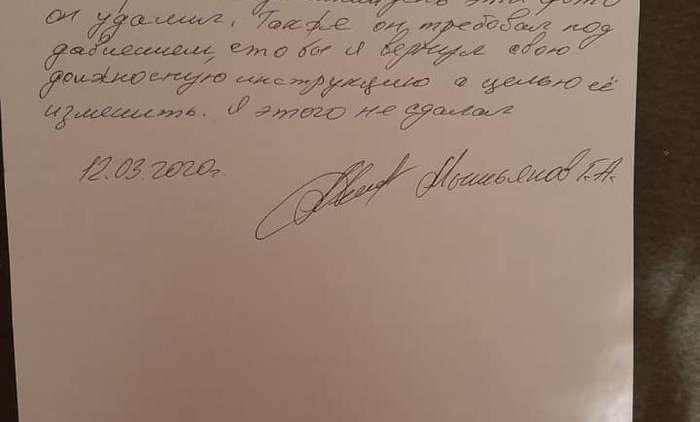 день эти фото
он удалил. Также он требовал под
давлением, что бы я вернул свою
должностную инструкцию с целью её
изменить. Я этого не сдалал
12.03.2020г. Мышьяков Г.А.